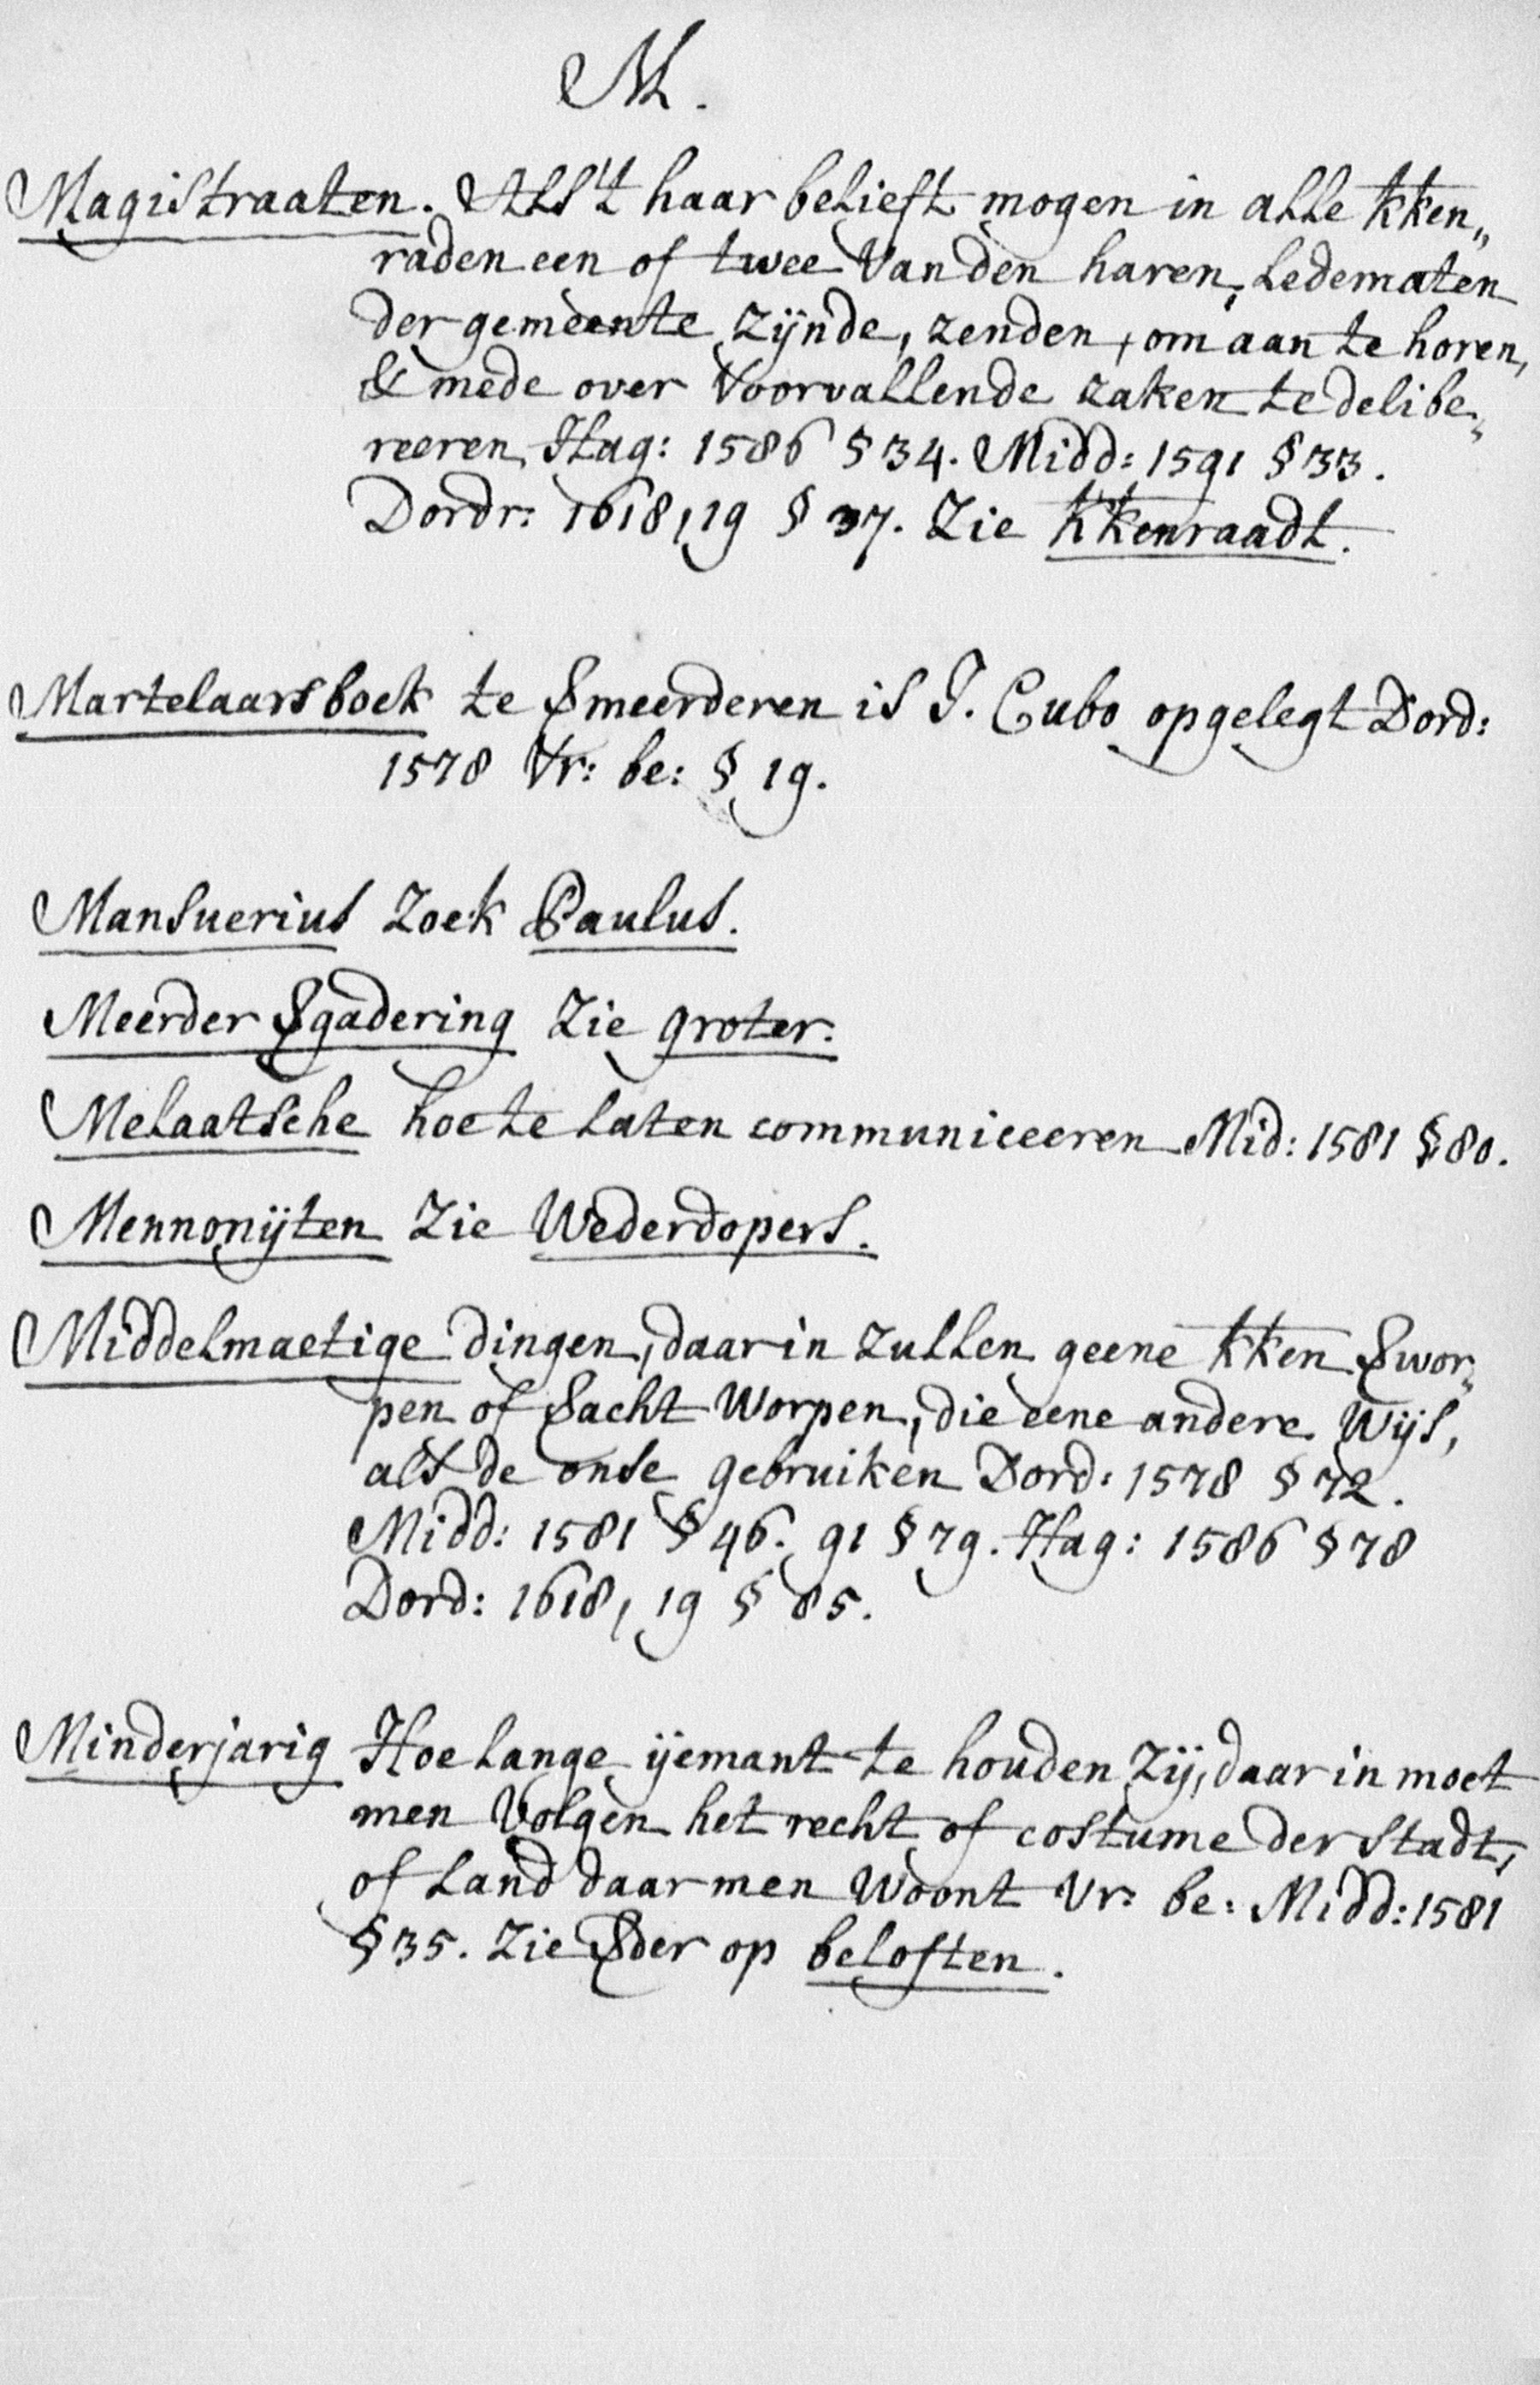 M.
Magistraaten. Als 't haar belieft mogen in alle kken„
raden een of twee van den haren, Ledematen
der gemeente zijnde, zenden, om aan te horen,
& mede over voorvallende zaken te delibe„
reeren, Hag: 1586 § 34. Midd: 1591 § 33.
Dordr: 1618, 19 § 37. Zie kkenraadt.
Martelaarsboek te $meerderen is J. Cubo opgelegt Dord:
1578 Vr: be: § 19.
Mansuerius Zoek Paulus.
Meerder $gadering Zie groter.
Melaatsche hoe te laten communiceeren Mid: 1581 § 80.
Mennonijten Zie Wederdopers.
Middelmaetige dingen, daar in zullen geene kken $wor„
pen of $acht worpen, die eene andere wijs,
als de onse gebruiken Dord: 1578 § 72.
Midd: 1581 § 46. 91 § 79. Hag: 1586 § 78
Dord: 1618, 19 § 85.
Minderjarig Hoe lange ijemant te houden zij, daar in moet
men volgen het recht of costume der stadt,
of Land daar men woont Vr: be: Midd: 1581
§ 35. Zie $der op beloften.